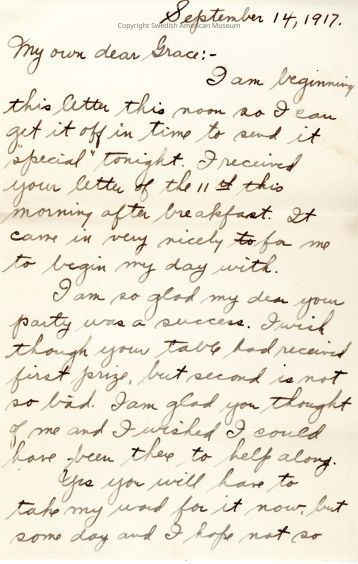 September 14, 1917.
Copyright Swedish American Museum
My own dear Grace:-
I am beginning
this letter this noon so I can
get it off in time to send it
"special" tonight. I received
your letter of the 11th this
morning after breakfast. It
came in very nicely to for me
to begin my day with.
I am so glad my dear your
party was a success. I wish
though your table had received
first prize, but second is not
so bad. I am glad you thought
of me and I wished I could
have been there to help along.
Yes you will have to
take my word for it now, but
some day and I hope not so